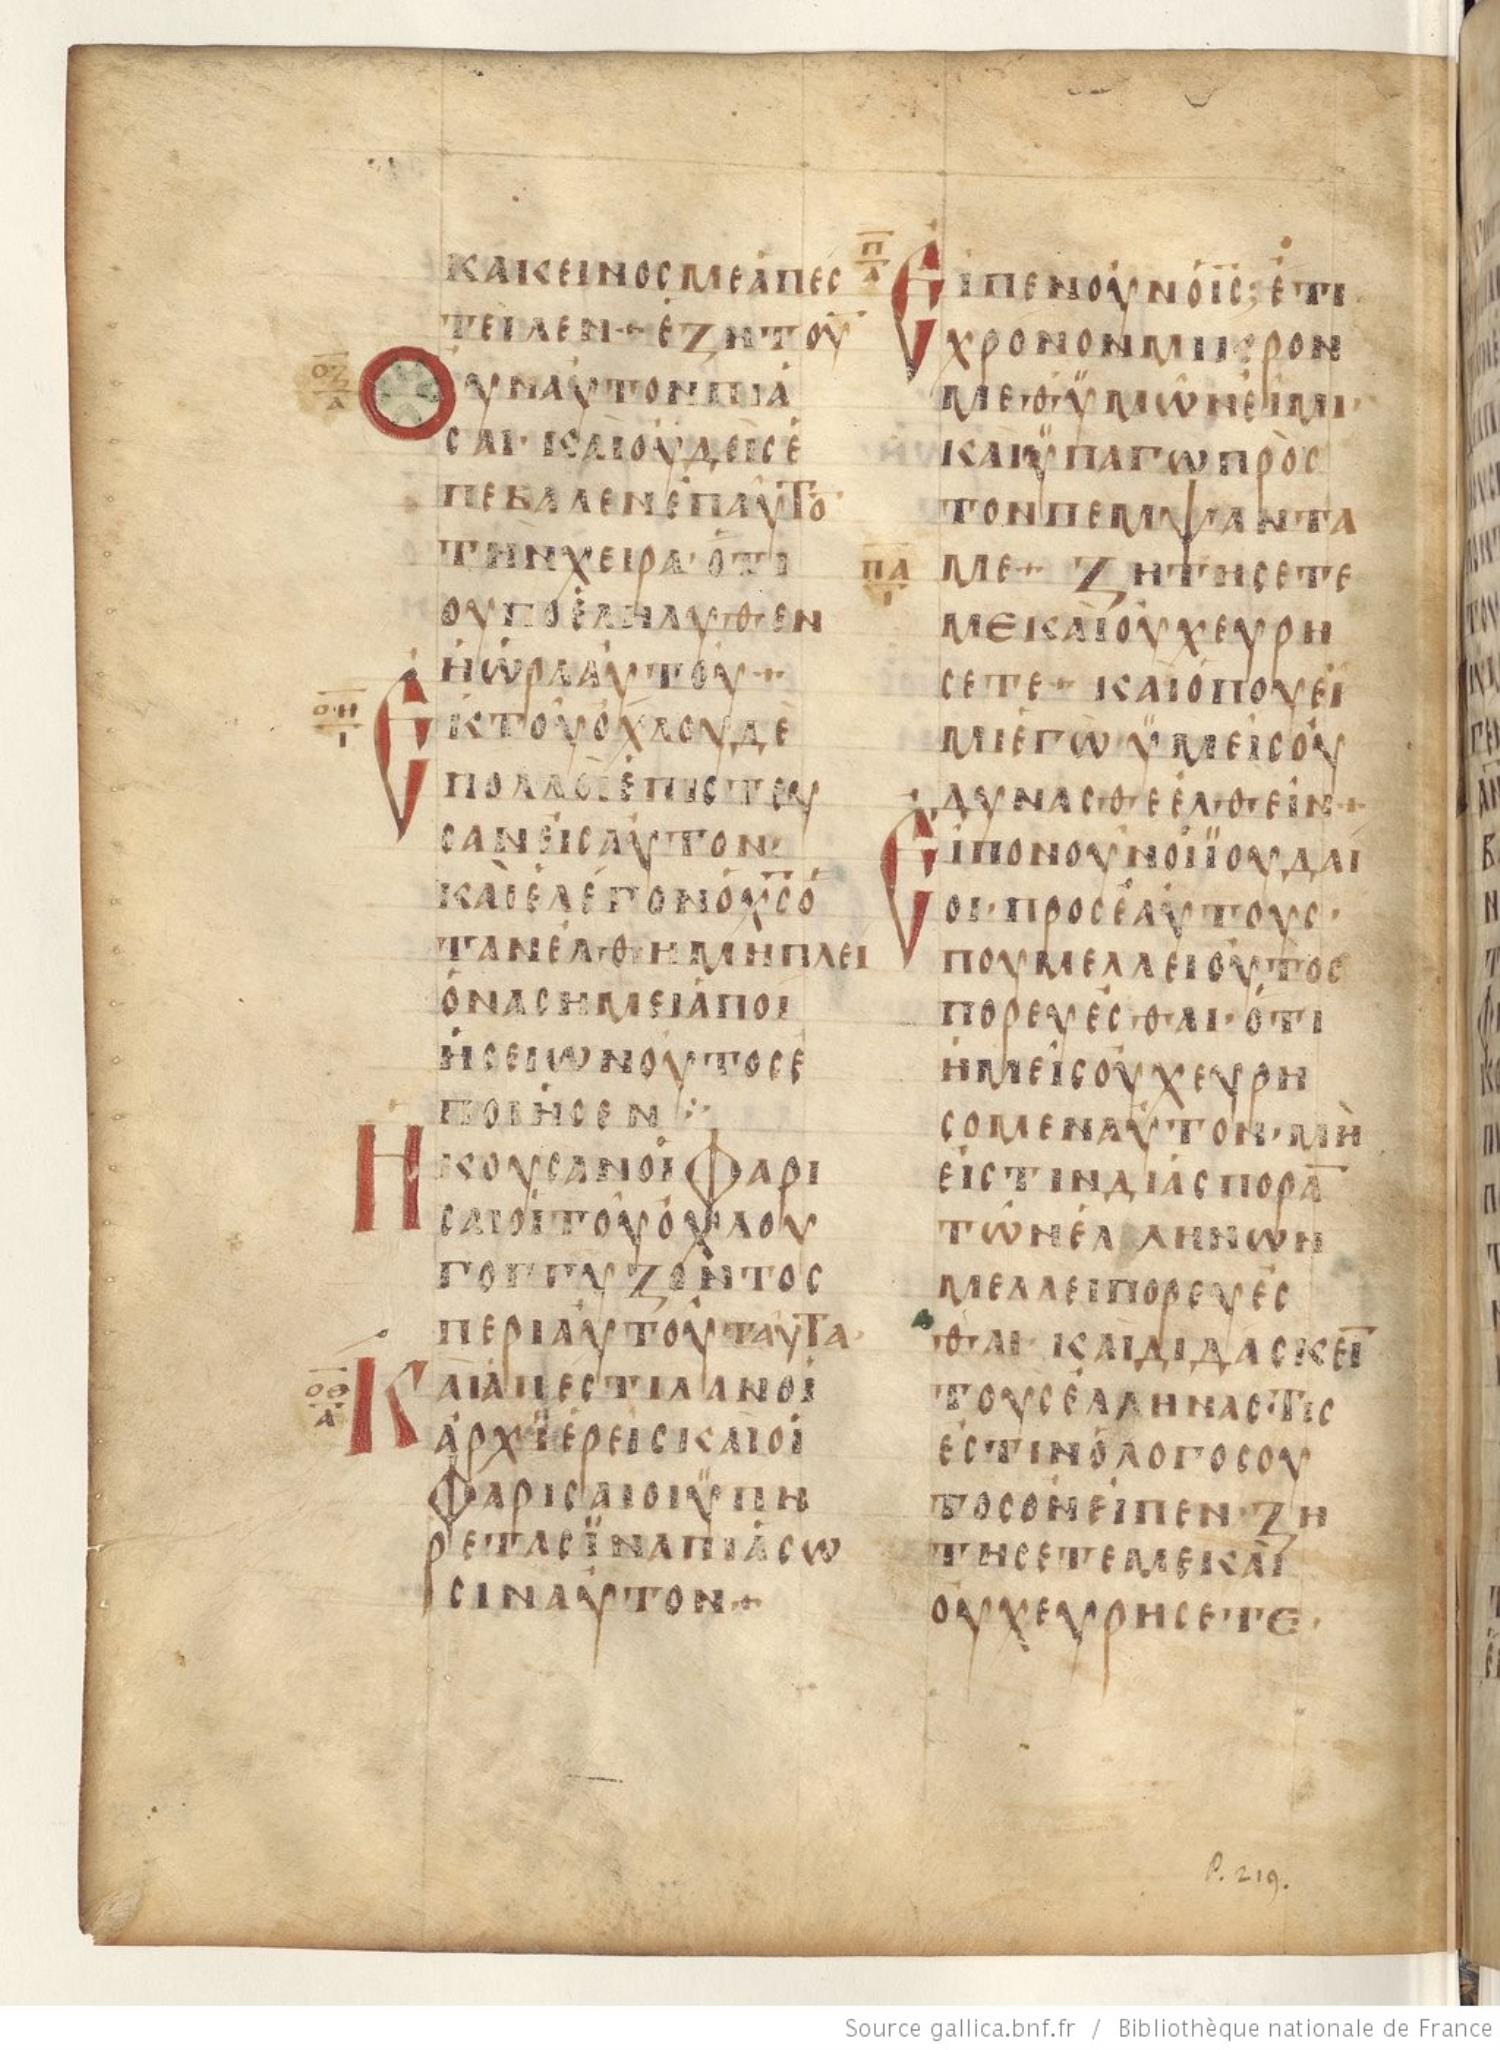 ΚΑΚΕΙΝΟΣΜΕΑΠΕΣ
ΤΕΙΛΕΝ + ΕΖΗΤΟΥ
ΟΖ
Α
ΟΥΝΑΥΤΟΝΠΙΑ
ΣΑΙ · ΚΑΙΟΥΔΕΙΣΕ
ΠΕΒΑΛΕΝΕΠΑΥΤΟ̅
ΤΗΝΧΕΙΡΑ · ΟΤΙ
ΟΥΠΟΕΛΗΛΥΘΕΝ
ΗΩΡΑΑΥΤΟΥ +
ΟΗ
Ι
ΕΚΤΟΥΟΧΛΟΥΔΕ
ΠΟΛΛΟΙΕΠΙΣΤΕΥ
ΣΑΝΕΙΣΑΥΤΟΝ ·
ΚΑΙΕΛΕΓΟΝΟΧ̅Σ̅Ο
ΤΑΝΕΛΘΗΜΗΠΛΕΙ
ΟΝΑΣΗΜΕΙΑΠΟΙ
ΗΣΕΙΩΝΟΥΤΟΣΕ
ΠΟΙΗΣΕΝ
ΗΚΟΥΣΑΝΟΙΦΑΡΙ
ΣΑΙΟΙΤΟΥΟΧΛΟΥ
ΓΟΓΓΥΖΟΝΤΟΣ
ΠΕΡΙΑΥΤΟΥΤΑΥΤΑ ·
ΟΘ
Α
ΚΑΙΑΠΕΣΤΙΛΑΝΟΙ
ΑΡΧΪΕΡΕΙΣΚΑΙΟΙ
ΦΑΡΙΣΑΙΟΙΫΠΗ
ΡΕΤΑΣΪΝΑΠΙΑΣΩ
ΣΙΝΑΥΤΟΝ +
Π
Α
ΕΙΠΕΝΟΥΝΟΙ̅Σ̅ · ΕΤΙ
ΧΡΟΝΟΝΜΙΚΡΟΝ
ΜΕΘΫΜΩΝΕΙΜΙ ·
ΚΑΙΫΠΑΓΩΠΡΟΣ
ΤΟΝΠΕΜΨΑΝΤΑ
ΠΑ
Ι
ΜΕ + ΖΗΤΗΣΕΤΕ
ΜΕΚΑΙΟΥΧΕΥΡΗ
ΣΕΤΕ + ΚΑΙΟΠΟΥΕΙ
ΜΙΕΓΩΫΜΕΙΣΟΥ
ΔΥΝΑΣΘΕΕΛΘΕΙΝ +
ΕΙΠΟΝΟΥΝΟΙΪΟΥΔΑΙ
ΟΙ · ΠΡΟΣΕΑΥΤΟΥΣ ·
ΠΟΥΜΕΛΛΕΙΟΥΤΟΣ
ΠΟΡΕΥΕΣΘΑΙ · ΟΤΙ
ΗΜΕΙΣΟΥΧΕΥΡΗ
ΣΟΜΕΝΑΥΤΟΝ · ΜΗ
ΕΙΣΤΙΝΔΙΑΣΠΟΡΑ̅
ΤΩΝΕΛΛΗΝΩΝ
ΜΕΛΛΕΙΠΟΡΕΥΕΣ
ΘΑΙ · ΚΑΙΔΙΔΑΣΚΕΙ̅
ΤΟΥΣΕΛΛΗΝΑΣ · ΤΙΣ
ΕΣΤΙΝΟΛΟΓΟΣΟΥ
ΤΟΣΟΝΕΙΠΕΝ · ΖΗ
ΤΗΣΕΤΕΜΕΚΑΙ
ΟΥΧΕΥΡΗΣΕΤΕ ·
P. 219.
Source gallica.bnf.fr / Bibliothèque nationale de France